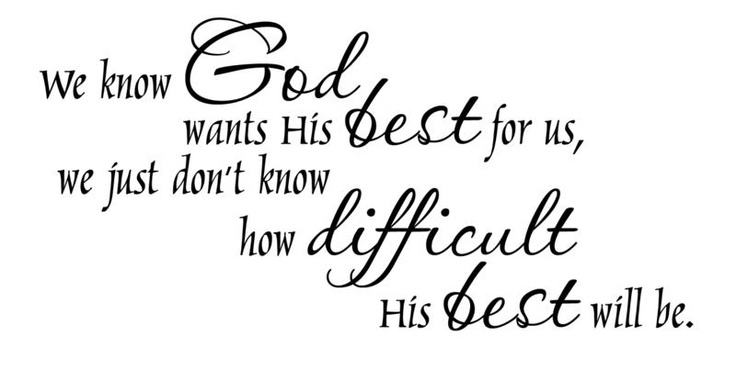 We know God
wants His best for us,
we just don't know
how difficult
His best will be.